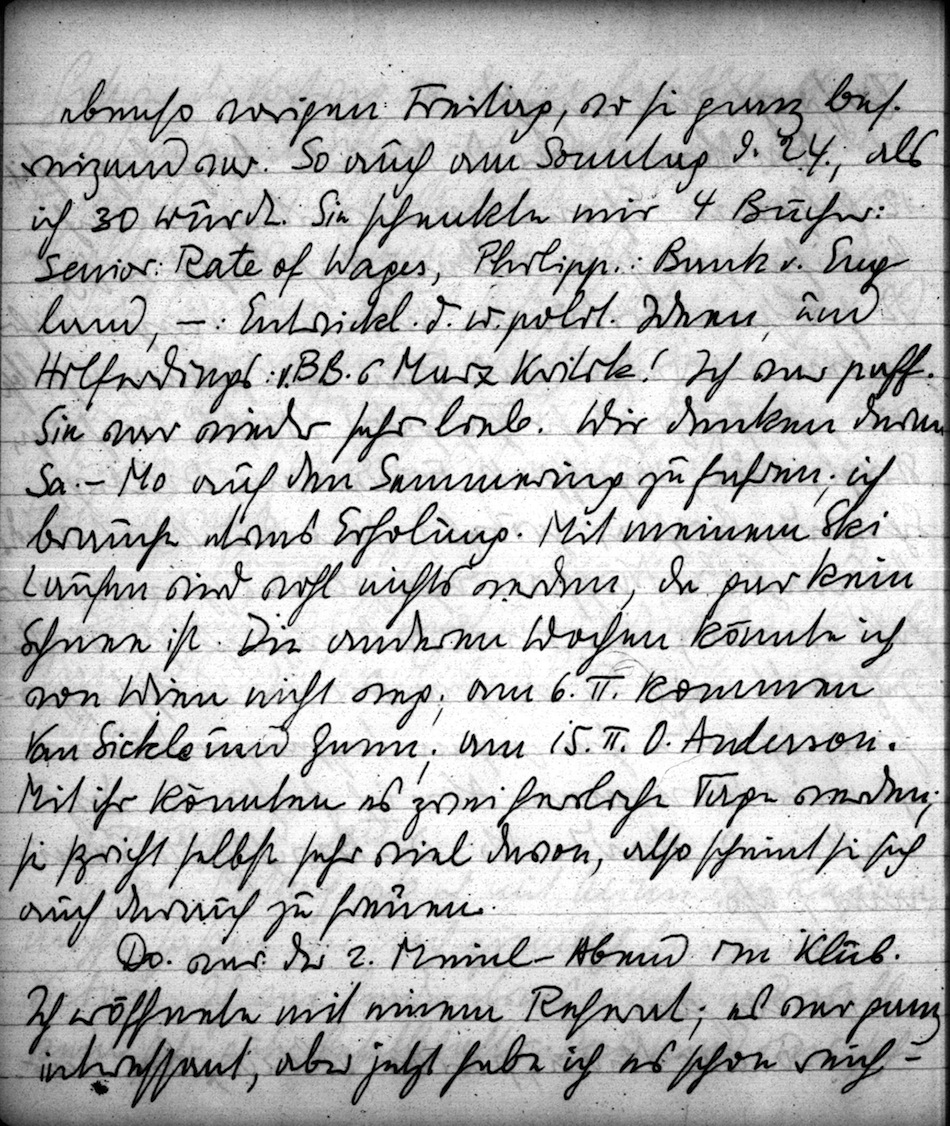 ebenso vorigen Freitag, wo sie ganz bes.
reizend war. So auch am Sonntag d. 24., als
ich 30 wurde. Sie schenkte mir 4 Bücher:
Senior: Rate of Wages, Philipp.: Bank v. Eng
land, —: Entwickl. d. w.polit. Ideen, und
Hilferdings: v. BB.s Marx Kritik! Ich war paff.
Sie war wieder sehr lieb. Wir denken daran
Sa.– Mo auf den Semmering zu fahren; ich
brauche etwas Erholung. Mit meinem Ski
Laufen wird wohl nichts werden, da gar kein
Schnee ist. Die anderen Wochen könnte ich
von Wien nicht weg; am 6. II. kommen
Van Sickle und Gunn; am 15. II. O. Anderson.
Mit ihr könnten es zwei herrliche Tage werden;
sie spricht selbst sehr viel davon, also scheint sie sich
auch darauf zu freuen.
Do. war der 2. Meinl– Abend im Klub.
Ich eröffnete mit einem Referat; es war ganz
interessant, aber jetzt habe ich es schon reich-